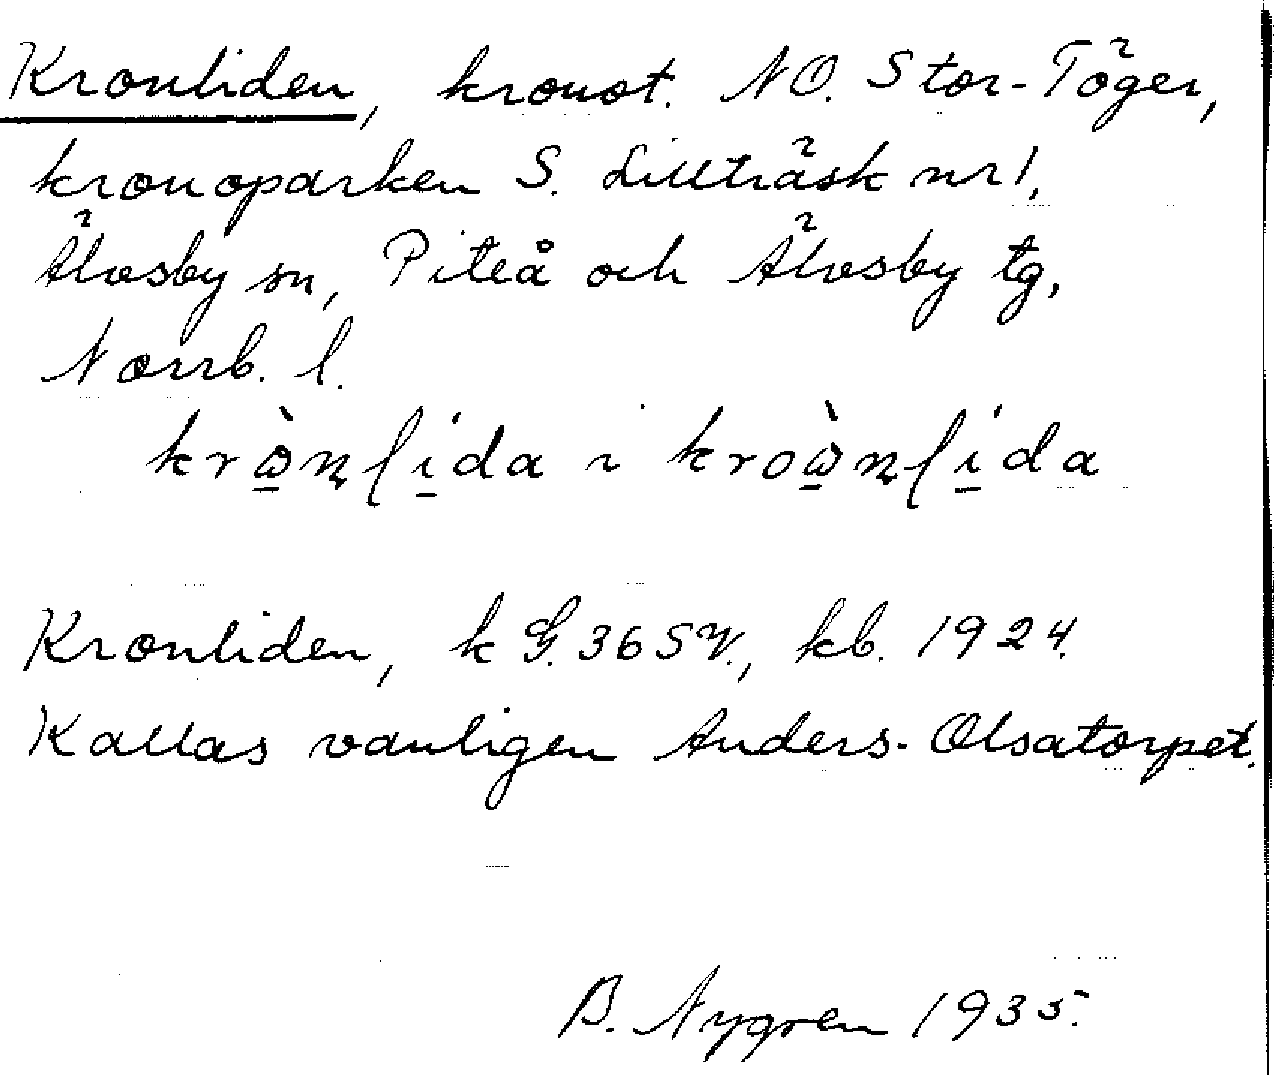 Kronliden, kronot. NO. Stor-Töger,
kronoparken S. Lillträsk nr 1,
Älvsby sn, Piteå och Älvsby tg,
Norrb. l.
Kronliden, k G. 365 V., kb. 1924.
Kallas vanligen Anders-Olsatorpet.
B. Nygren 1935.